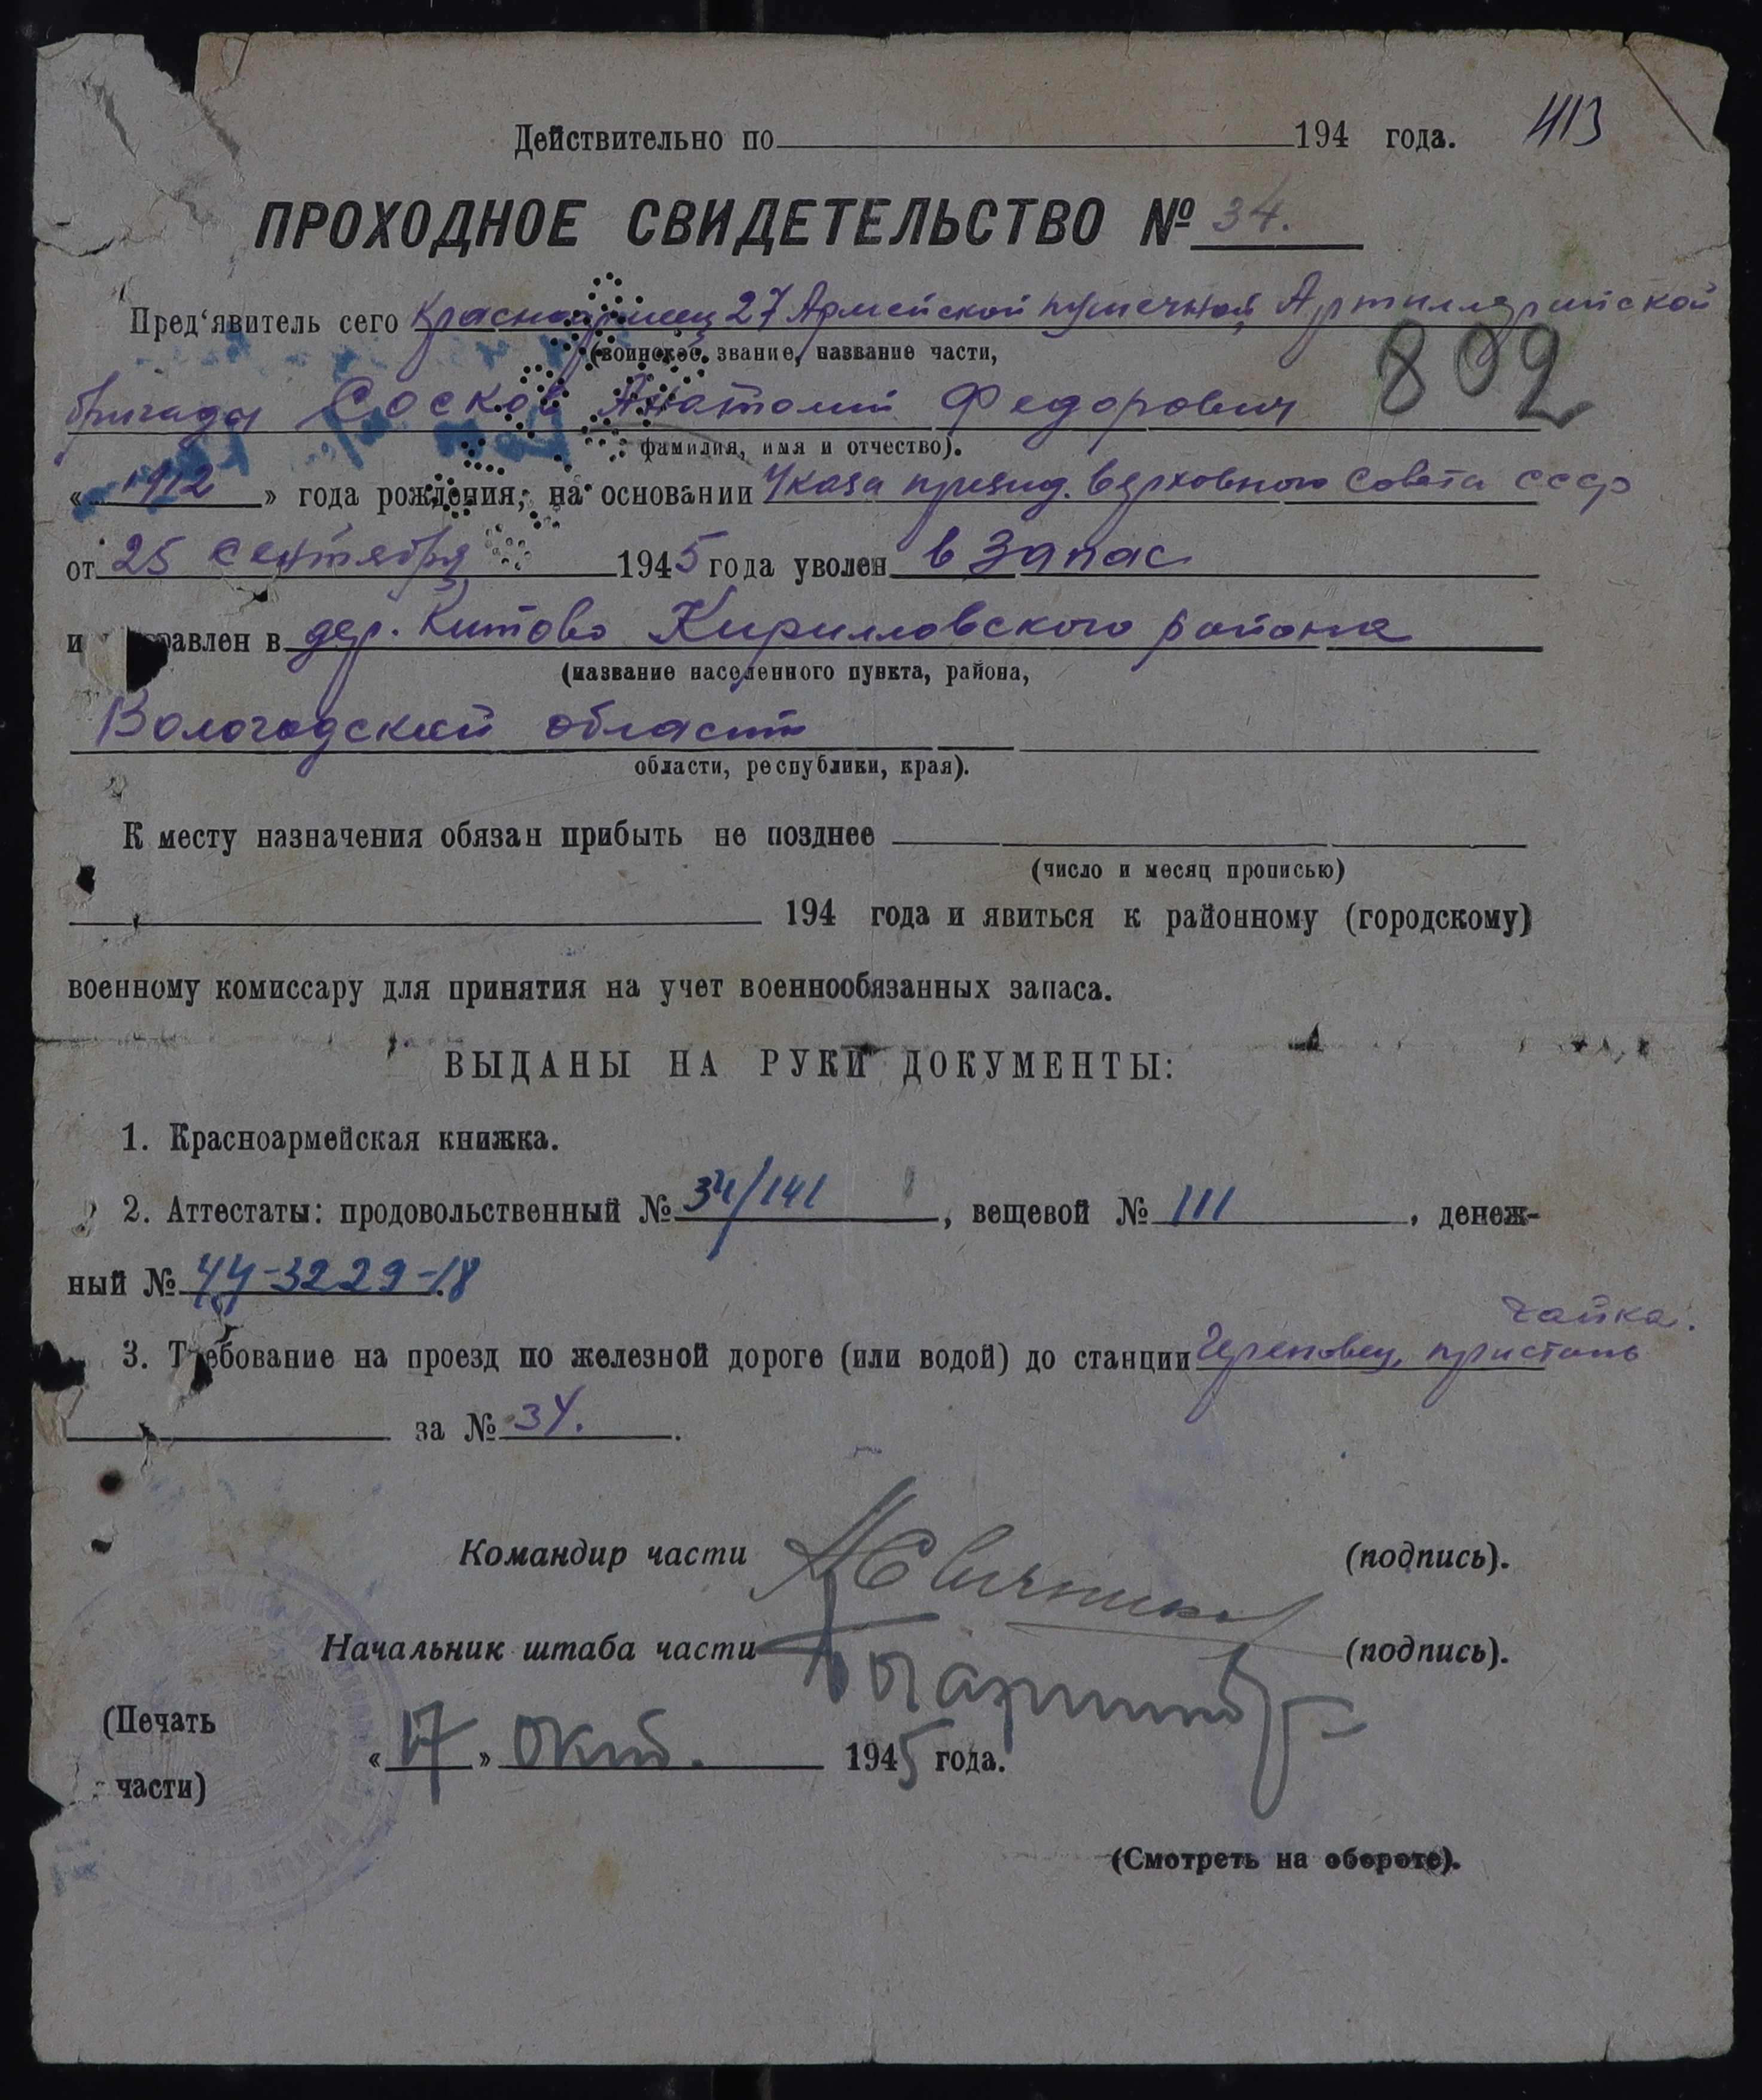 Действительно по 194 года. 413
ПРОХОДНОЕ СВИДЕТЕЛЬСТВО № 34.
Пред'явитель сего Красноармеец 27 Армейской пушечной Артиллерийской
(воинское звание, название части,
бригады Сосков Анатолий Федорович 802
фамилия, имя и отчество).
«1912» года рождения, на основании Указа през​ид. Верховного Совета СССР
от 25 сентября 1945 года уволен в запас
и равлен в дер. Китово Кирилловского района
(название населенного пункта, района,
Вологодский области
области, республики, края).
К месту назначения обязан прибыть не позднее
(число и месяц прописью)
194 года и явиться к районному (городскому)
военному комиссару для принятия на учет военнообязанных запаса.
ВЫДАНЫ НА РУКИ ДОКУМЕНТЫ:
1. Красноармейская книжка.
2. Аттестаты: продовольственный № 34/141, вещевой № 111, денеж-
ный № 44-3229-18
чайка.
3. Требование на проезд по железной дороге (или водой) до станции Череповец, пристань
за № 34.
Командир части (подпись).
Начальник штаба части (подпись).
(Печать
части)
«17» окт. 1945 года.
(Смотреть на обороте).